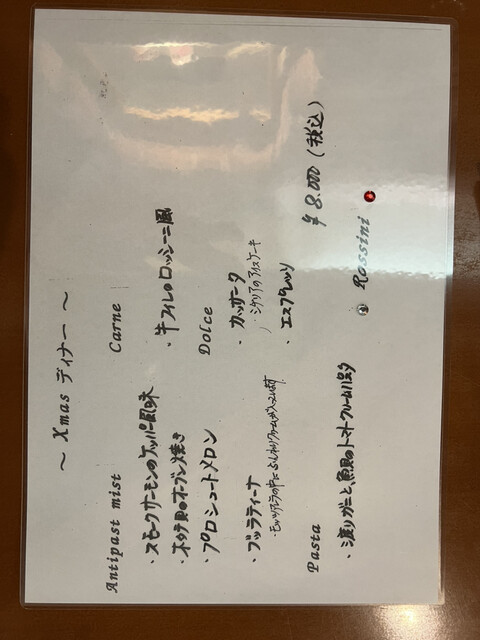 ～ Xmas ディナー ～
Antipast mist
・スモークサーモンのケッパー風味
・ホタテ貝のオーブン焼き
・プロシュートメロン
・ブッラティーナ
・モッツァレラの中に
Pasta
・渡りガニと、魚貝のトマトクリームパスタ
Carne
・牛フィレのロッシーニ風
Dolce
・カッサータ
・シチリアのアイスケーキ
・エスプレッソ
¥8.000（税込）
Rossini